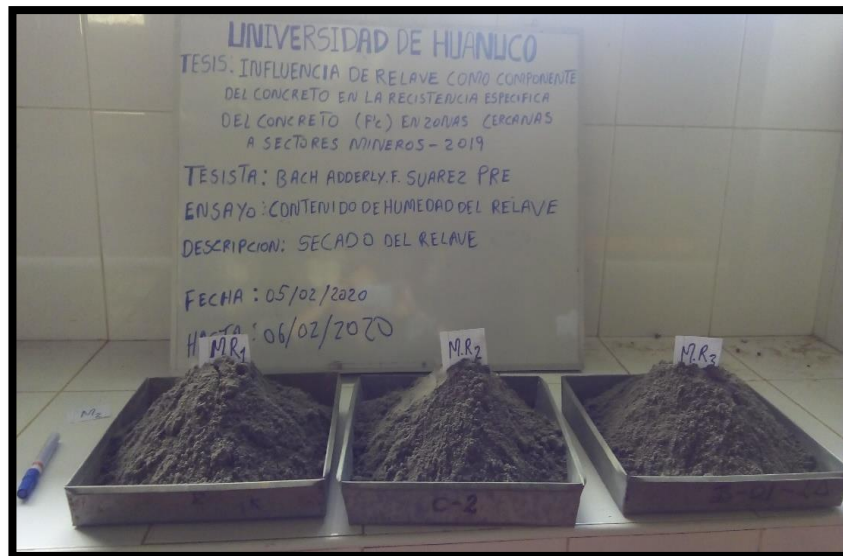 UNIVERSIDAD DE HUANUCO
TESIS: INFLUENCIA DE RELAVE COMO COMPONENTE
DEL CONCRETO EN LA RECISTENCIA ESPECIFICA
DEL CONCRETO (F'c) EN ZONAS CERCANAS
A SECTORES MINEROS-2019
TESISTA: BACH ADDERLY.F. SUAREZ PRE
ENSAYO: CONTENIDO DE HUMEDAD DEL RELAVE
DESCRIPCION: SECADO DEL RELAVE
FECHA: 05/02/2020
HASTA: 06/02/2020
M.R1
M.R2
M.R3
C-2